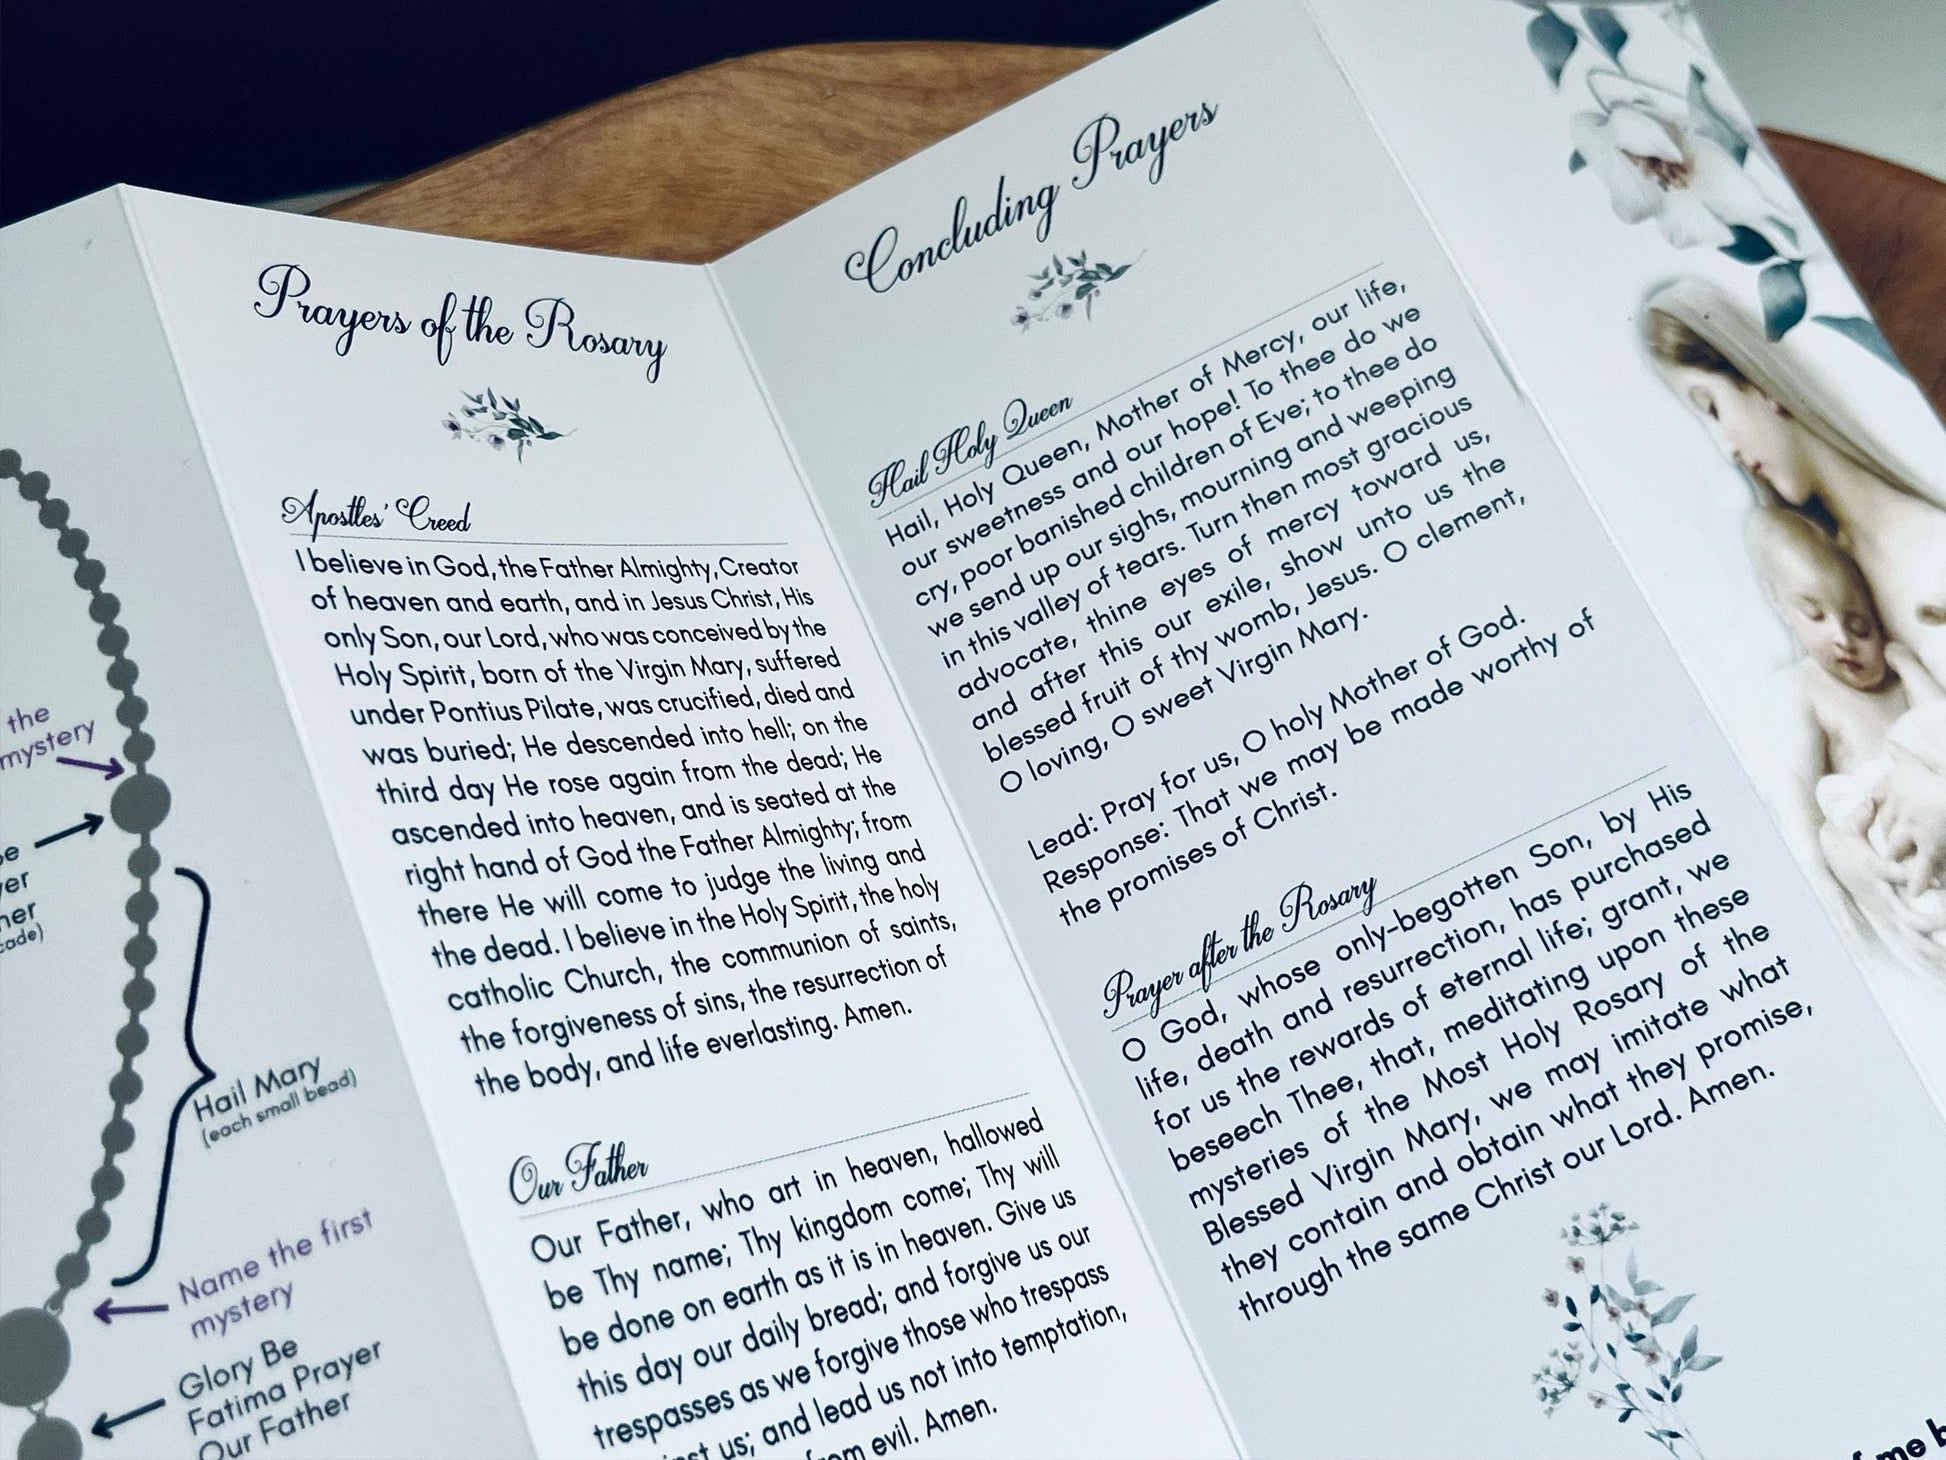 the
mystery
Hail Mary
(each small bead)
Name the first
mystery
Glory Be
Fatima Prayer
Our Father
Prayers of the Rosary
Apostles' Creed
I believe in God, the Father Almighty, Creator
of heaven and earth, and in Jesus Christ, His
only Son, our Lord, who was conceived by the
Holy Spirit, born of the Virgin Mary, suffered
under Pontius Pilate, was crucified, died and
was buried; He descended into hell; on the
third day He rose again from the dead; He
ascended into heaven, and is seated at the
right hand of God the Father Almighty; from
there He will come to judge the living and
the dead. I believe in the Holy Spirit, the holy
catholic Church, the communion of saints,
the forgiveness of sins, the resurrection of
the body, and life everlasting. Amen.
Our Father
Our Father, who art in heaven, hallowed
be Thy name; Thy kingdom come; Thy will
be done on earth as it is in heaven. Give us
this day our daily bread; and forgive us our
trespasses as we forgive those who trespass
us; and lead us not into temptation,
evil. Amen.
Concluding Prayers
Hail Holy Queen
Hail, Holy Queen, Mother of Mercy, our life,
our sweetness and our hope! To thee do we
cry, poor banished children of Eve; to thee do
we send up our sighs, mourning and weeping
in this valley of tears. Turn then most gracious
advocate, thine eyes of mercy toward us,
and after this our exile, show unto us the
blessed fruit of thy womb, Jesus. O clement,
O loving, O sweet Virgin Mary.
Lead: Pray for us, O holy Mother of God.
Response: That we may be made worthy of
the promises of Christ.
Prayer after the Rosary
O God, whose only-begotten Son, by His
life, death and resurrection, has purchased
for us the rewards of eternal life; grant, we
beseech Thee, that, meditating upon these
mysteries of the Most Holy Rosary of the
Blessed Virgin Mary, we may imitate what
they contain and obtain what they promise,
through the same Christ our Lord. Amen.
of me